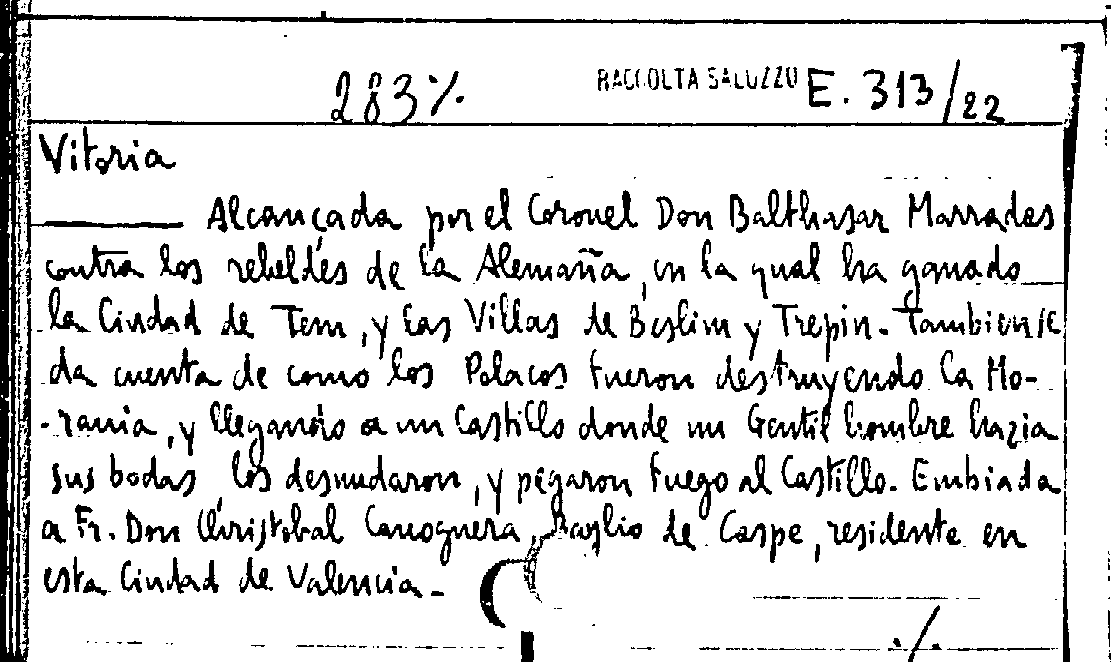 283 ./.
RACCOLTA SALUZZO E. 313/22
Vitoria
Alcançada por el Coronel Don Balthasar Marrades
contra los rebeldes de la Alemaña, en la qual ha ganado
la Ciudad de Tem, y las Villas de Beslim y Trepin. Tambien se
da cuenta de como los Polacos fueron destruyendo la Mo-
-rauia, y llegando a un Castillo donde un Gentil hombre hazia
sus bodas, los desnudaron, y pegaron fuego al Castillo. Embiada
a Fr. Don Christobal Canoguera, Baylio de Caspe, residente en
esta Ciudad de Valencia.-
./.